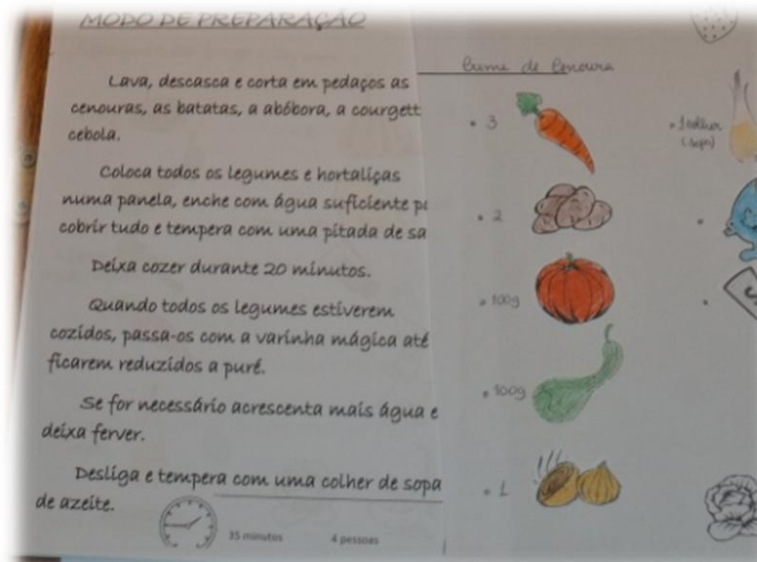 MODO DE PREPARAÇÃO
Lava, descasca e corta em pedaços as
cenouras, as batatas, a abóbora, a courgett
cebola.
Coloca todos os legumes e hortaliças
numa panela, enche com água suficiente pa
cobrir tudo e tempera com uma pitada de sa
Deixa cozer durante 20 minutos.
Quando todos os legumes estiverem
cozidos, passa-os com a varinha mágica até
ficarem reduzidos a puré.
Se for necessário acrescenta mais água e
deixa ferver.
Desliga e tempera com uma colher de sopa
de azeite.
35 minutos
4 pessoas
Creme de Cenoura
• 3
• 2
• 100g
• 100g
• 1
• 1 colher
(sopa)